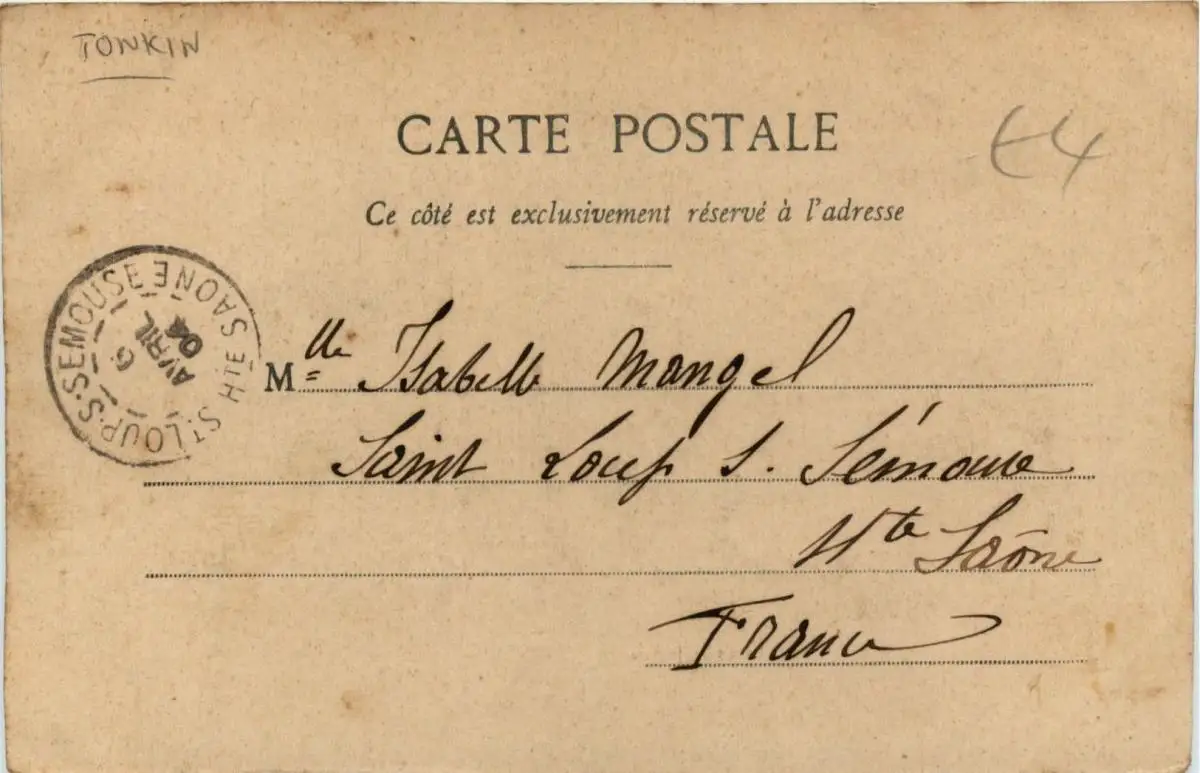 TONKIN
CARTE POSTALE
€4
Ce côté est exclusivement réservé à l'adresse
ST LOUP-S-SEMOUSE HTE SAONE
6
AVRIL
04
Mlle Isabelle Mangel
Saint Loup s. Sémouse
Hte Saône
France